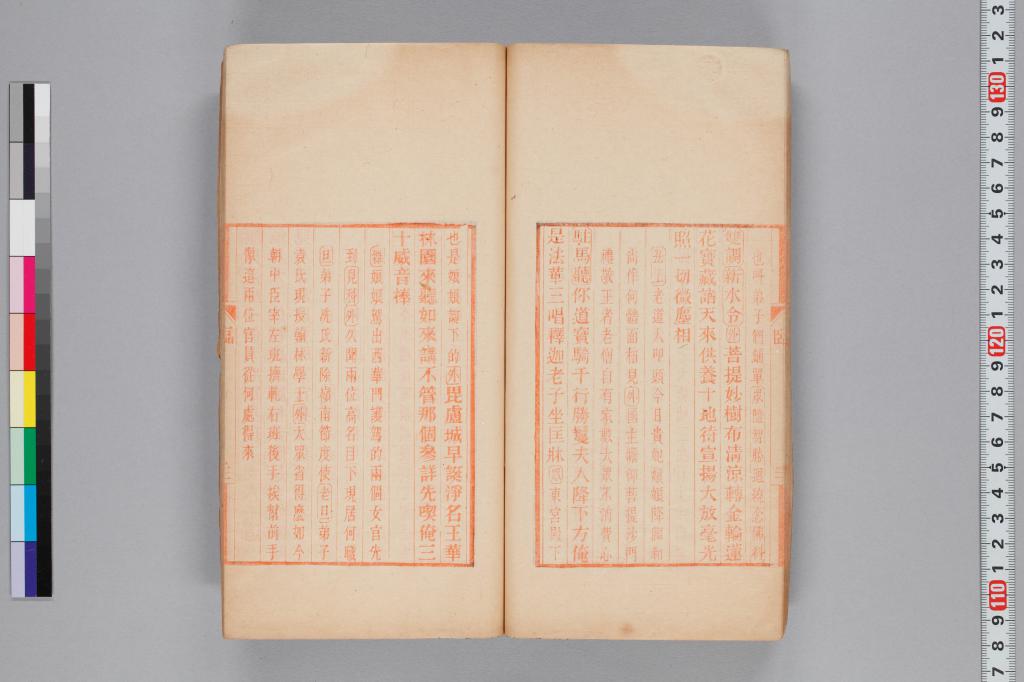 也呼弟子們鋪單衆唱
雙調新水令外菩提妙樹布清涼轉金輪蓮
花寶藏諸天來供養十地待宣揚大放毫光
照一切微塵相
丑上老道人叩頭今日貴妃娘娘降臨和
尚作何體面相見外國王禮御菩提沙門
禮敬王者老僧自有家眷大眾不消費心
駐馬聽你道寶騎千行勝鬘夫人降下方俺
是法華三唱釋迦老子坐匡牀 東宮殿下
也是娘娘部下的外毘盧城早誕淨名王華
林園來聽如來講不管那個參詳先喫俺三
十威音捧
雜娘娘駕出西華門護駕的兩個女官先
到見科外久聞兩位高名目下現居何職
旦弟子洗氏新除嶺南節度使老旦弟子
袁氏現長翰林學士外大眾省得麼如今
朝中臣宰左班擠軋右班後手挨幫前手
像這兩位官員從何處得來